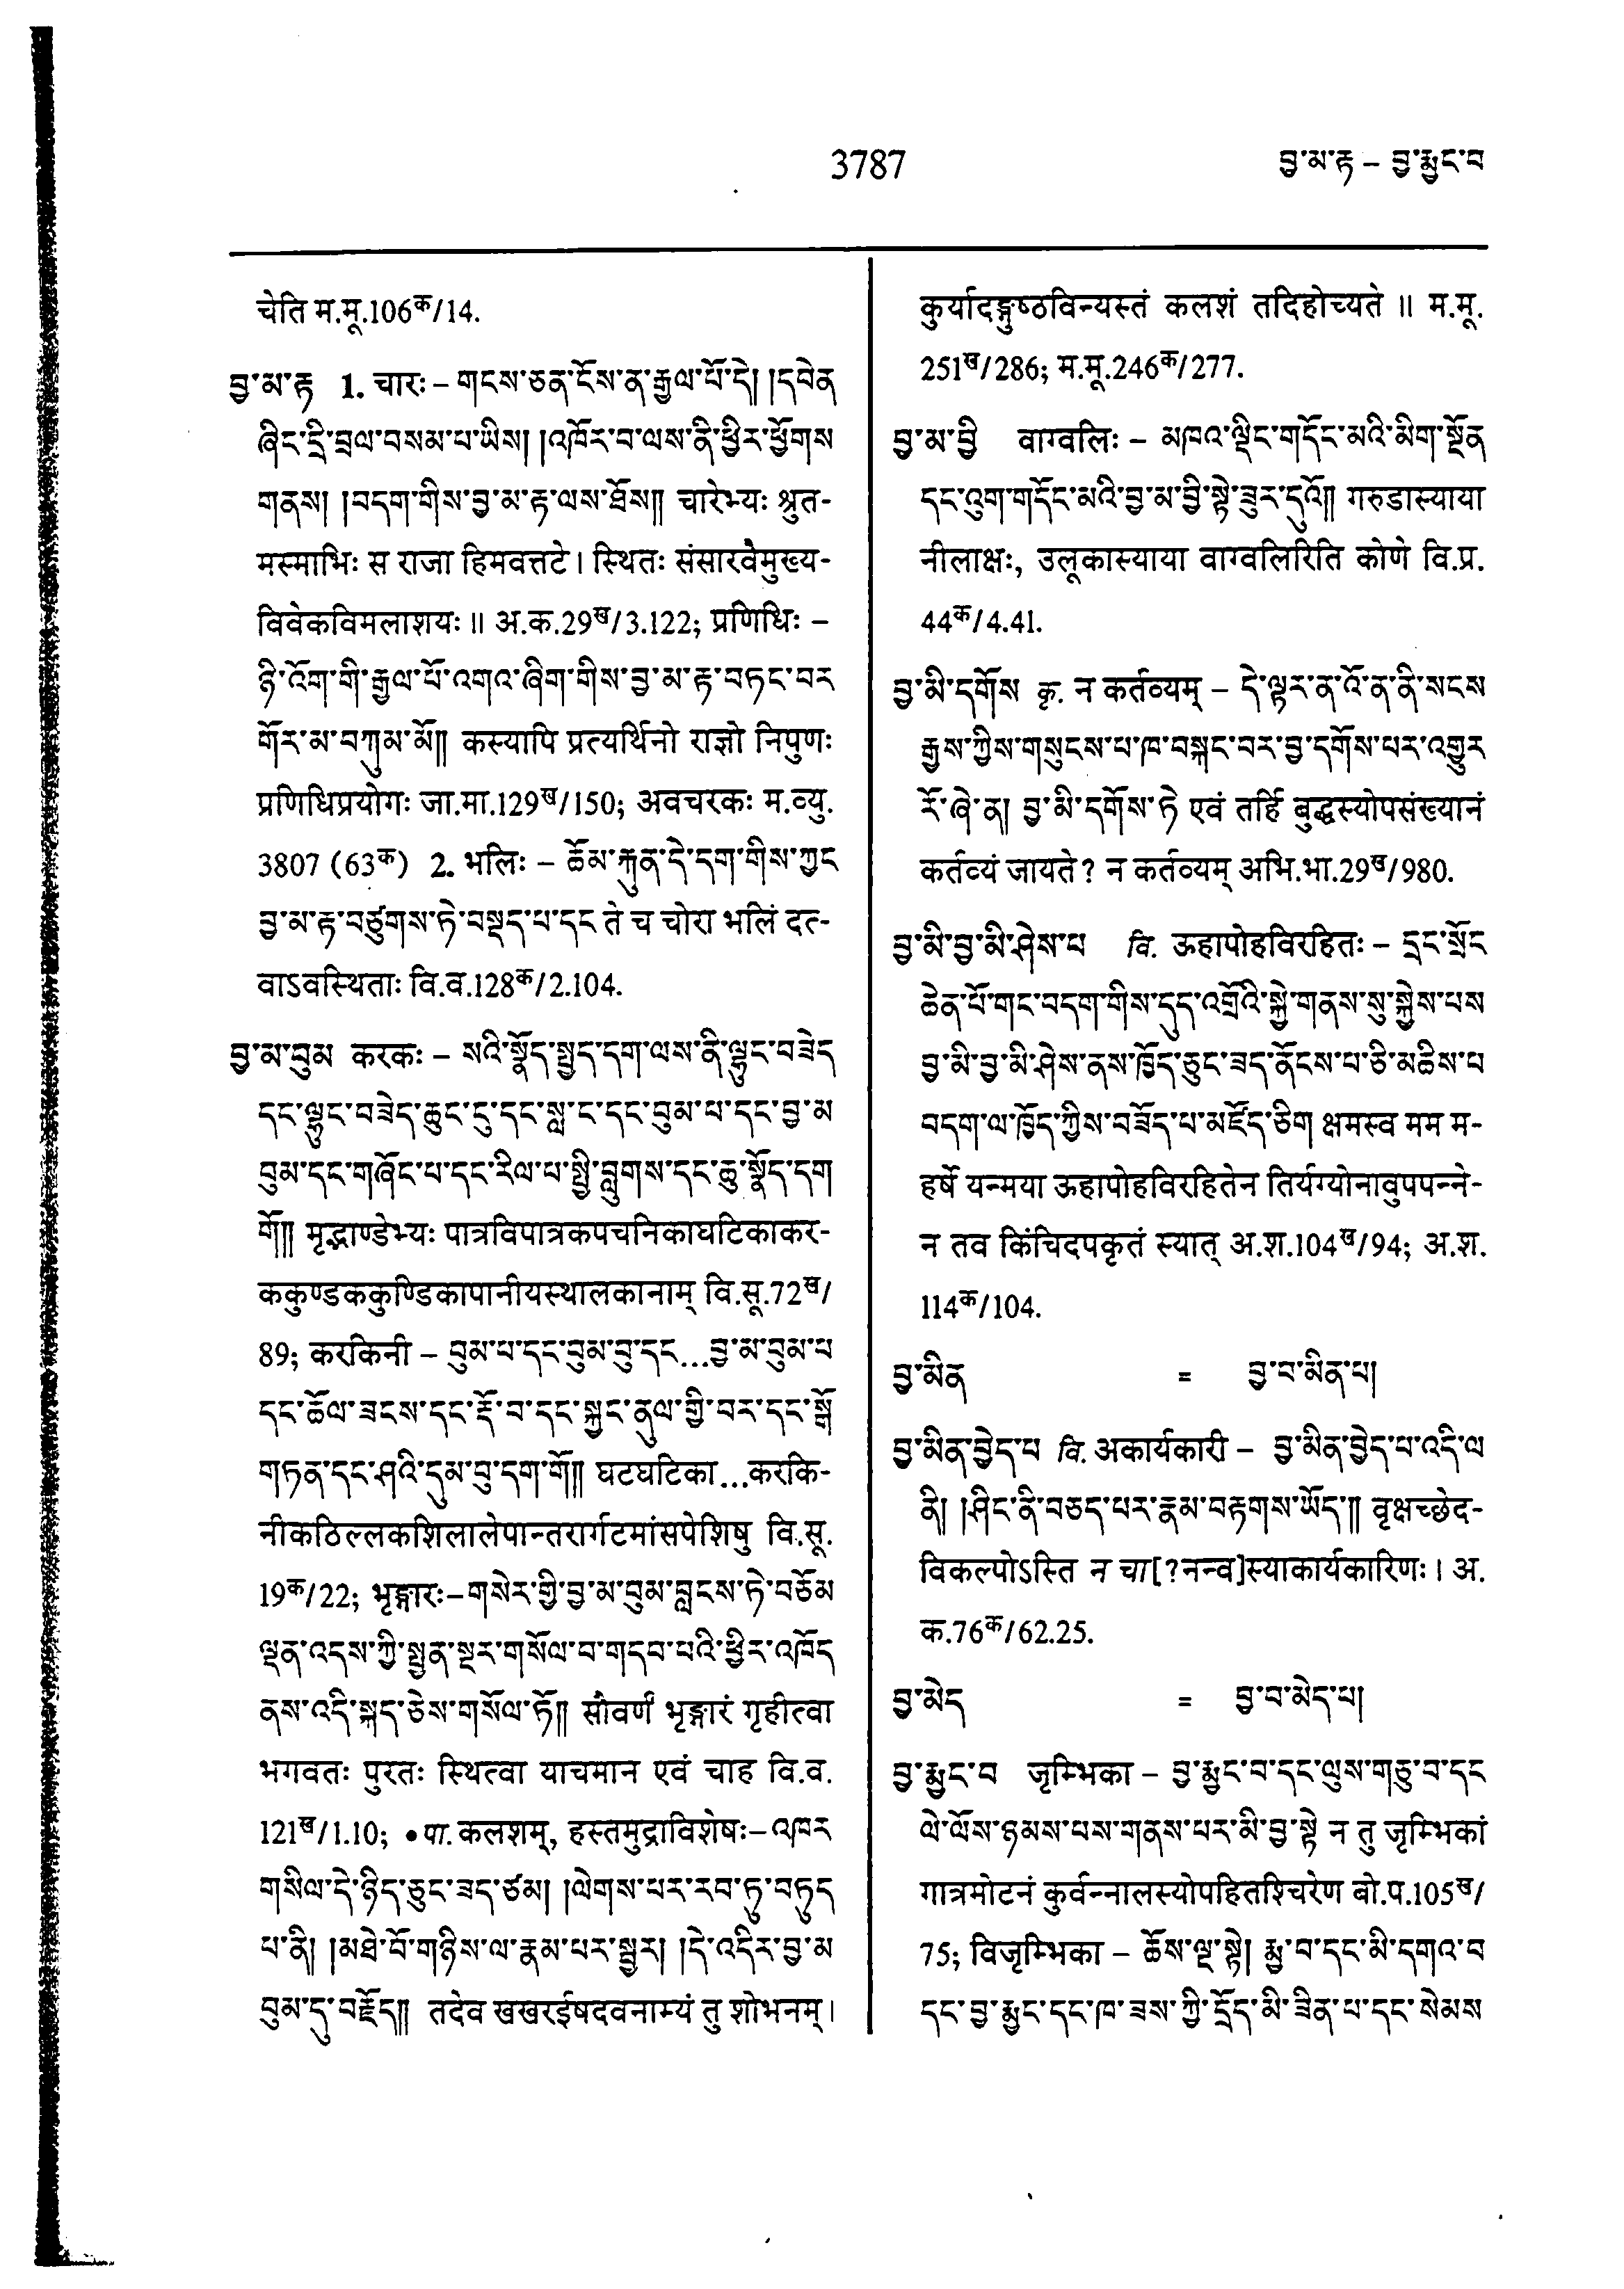 3787
བྱ་མ་རྟ – བྱ་རྨྱང་བ
चेति म.मू.106ᵏ/14.
བྱ་མ་རྟ 1. चारः – གངས་ཅན་ངོས་ན་རྒྱལ་པོ་དེ། །དབེན
ཞིང་དྲི་བྲལ་བསམ་པ་ཡིས། །འཁོར་བ་ལས་ནི་ཕྱིར་ཕྱོགས
གནས། །བདག་གིས་བྱ་མ་རྟ་ལས་ཐོས།། चारेभ्यः श्रुत-
मस्माभिः स राजा हिमवत्तटे । स्थितः संसारवैमुख्य-
विवेकविमलाशयः ॥ अ.क.29ख/3.122; प्रणिधिः –
ཉི་འོག་གི་རྒྱལ་པོ་འགའ་ཞིག་གིས་བྱ་མ་རྟ་བཏང་བར
གོར་མ་བཀུམ་མོ།། कस्यापि प्रत्यर्थिनो राज्ञो निपुणः
प्रणिधिप्रयोगः जा.मा.129ख/150; अवचरकः म.व्यु.
3807 (63क) 2. भलिः – ཆོམ་རྐུན་དེ་དག་གིས་ཀྱང
བྱ་མ་རྟ་བཙུགས་ཏེ་བསྡད་པ་དང ते च चोरा भलिं दत्-
वाऽवस्थिताः वि.व.128क/2.104.
བྱ་མ་བུམ करकः – སའི་སྣོད་སྤྱད་དག་ལས་ནི་ལྷུང་བཟེད
དང་ལྷུང་བཟེད་ཆུང་ངུ་དང་སླ་ང་དང་བུམ་པ་དང་བྱ་མ
བུམ་དང་གཞོང་པ་དང་རིལ་པ་སྤྱི་བླུགས་དང་ཆུ་སྣོད་དག
གོ།། मृद्भाण्डेभ्यः पात्रविपात्रकपचनिकाघटिकाकर-
ककुण्डककुण्डिकापानीयस्थालकानाम् वि.सू.72ख/
89; करकिनी – བུམ་པ་དང་བུམ་བུ་དང...བྱ་མ་བུམ་པ
དང་ཆོལ་ཟངས་དང་རྡོ་བ་དང་སྐྱང་ནུལ་གྱི་བར་དང་སྒོ
གཏན་དང་ཤའི་དུམ་བུ་དག་གོ།། घटघटिका...करकि-
नीकठिल्लकशिलालेपान्तरार्गटमांसपेशिषु वि.सू.
19क/22; भृङ्गारः– གསེར་གྱི་བྱ་མ་བུམ་བླངས་ཏེ་བཅོམ
ལྡན་འདས་ཀྱི་སྤྱན་སྔར་གསོལ་བ་གདབ་པའི་ཕྱིར་འཁོད
ནས་འདི་སྐད་ཅེས་གསོལ་ཏོ།། सौवर्णं भृङ्गारं गृहीत्वा
भगवतः पुरतः स्थित्वा याचमान एवं चाह वि.व.
121ख/1.10; • पा. कलशम्, हस्तमुद्राविशेषः– འཁར
གསིལ་དེ་ཉིད་ཅུང་ཟད་ཙམ། །ལེགས་པར་རབ་ཏུ་བཏུད
པ་ནི། །མཐེ་བོ་གཉིས་ལ་རྣམ་པར་སྦྱར། །དེ་འདིར་བྱ་མ
བུམ་དུ་བརྗོད།། तदेव खखरईषदवनाम्यं तु शोभनम् ।
कुर्यादङ्गुष्ठविन्यस्तं कलशं तदिहोच्यते ॥ म.मू.
251ख/286; म.मू.246क/277.
བྱ་མ་བྱི वाग्वलिः – མཁའ་ལྡིང་གདོང་མའི་མིག་སྔོན
དང་འུག་གདོང་མའི་བྱ་མ་བྱི་སྟེ་ཟུར་དུའོ།། गरुडास्याया
नीलाक्षः, उलूकास्याया वाग्वलिरिति कोणे वि.प्र.
44क/4.41.
བྱ་མི་དགོས कृ. न कर्तव्यम् – དེ་ལྟར་ན་འོ་ན་ནི་སངས
རྒྱས་ཀྱིས་གསུངས་པ་ཁ་བསྐང་བར་བྱ་དགོས་པར་འགྱུར
རོ་ཞེ་ན། བྱ་མི་དགོས་ཏེ एवं तर्हि बुद्धस्योपसंख्यानं
कर्तव्यं जायते ? न कर्तव्यम् अभि.भा.29ख/980.
བྱ་མི་བྱ་མི་ཤེས་པ वि. ऊहापोहविरहितः – དྲང་སྲོང
ཆེན་པོ་གང་བདག་གིས་དུད་འགྲོའི་སྐྱེ་གནས་སུ་སྐྱེས་པས
བྱ་མི་བྱ་མི་ཤེས་ནས་ཁྱོད་ཅུང་ཟད་ནོངས་པ་ཅི་མཆིས་པ
བདག་ལ་ཁྱོད་ཀྱིས་བཟོད་པ་མཛོད་ཅིག क्षमस्व मम म-
हर्षे यन्मया ऊहापोहविरहितेन तिर्यग्योनावुपपन्ने-
न तव किंचिदपकृतं स्यात् अ.श.104ख/94; अ.श.
114क/104.
བྱ་མིན = བྱ་བ་མིན་པ།
བྱ་མིན་བྱེད་པ वि. अकार्यकारी – བྱ་མིན་བྱེད་པ་འདི་ལ
ནི། །ཤིང་ནི་བཅད་པར་རྣམ་བརྟགས་ཡོད།། वृक्षच्छेद-
विकल्पोऽस्ति न चा[?नन्व]स्याकार्यकारिणः । अ.
क.76क/62.25.
བྱ་མེད = བྱ་བ་མེད་པ།
བྱ་རྨྱང་བ जृम्भिका – བྱ་རྨྱང་བ་དང་ལུས་གཅུ་བ་དང
ལེ་ལོས་ཉམས་པས་གནས་པར་མི་བྱ་སྟེ न तु जृम्भिकां
गात्रमोटनं कुर्वन्नालस्योपहितश्चिरेण बो.प.105ख/
75; विजृम्भिका – ཆོས་ལྔ་སྟེ། རྨྱ་བ་དང་མི་དགའ་བ
དང་བྱ་རྨྱང་དང་ཁ་ཟས་ཀྱི་དྲོད་མི་ཟིན་པ་དང་སེམས